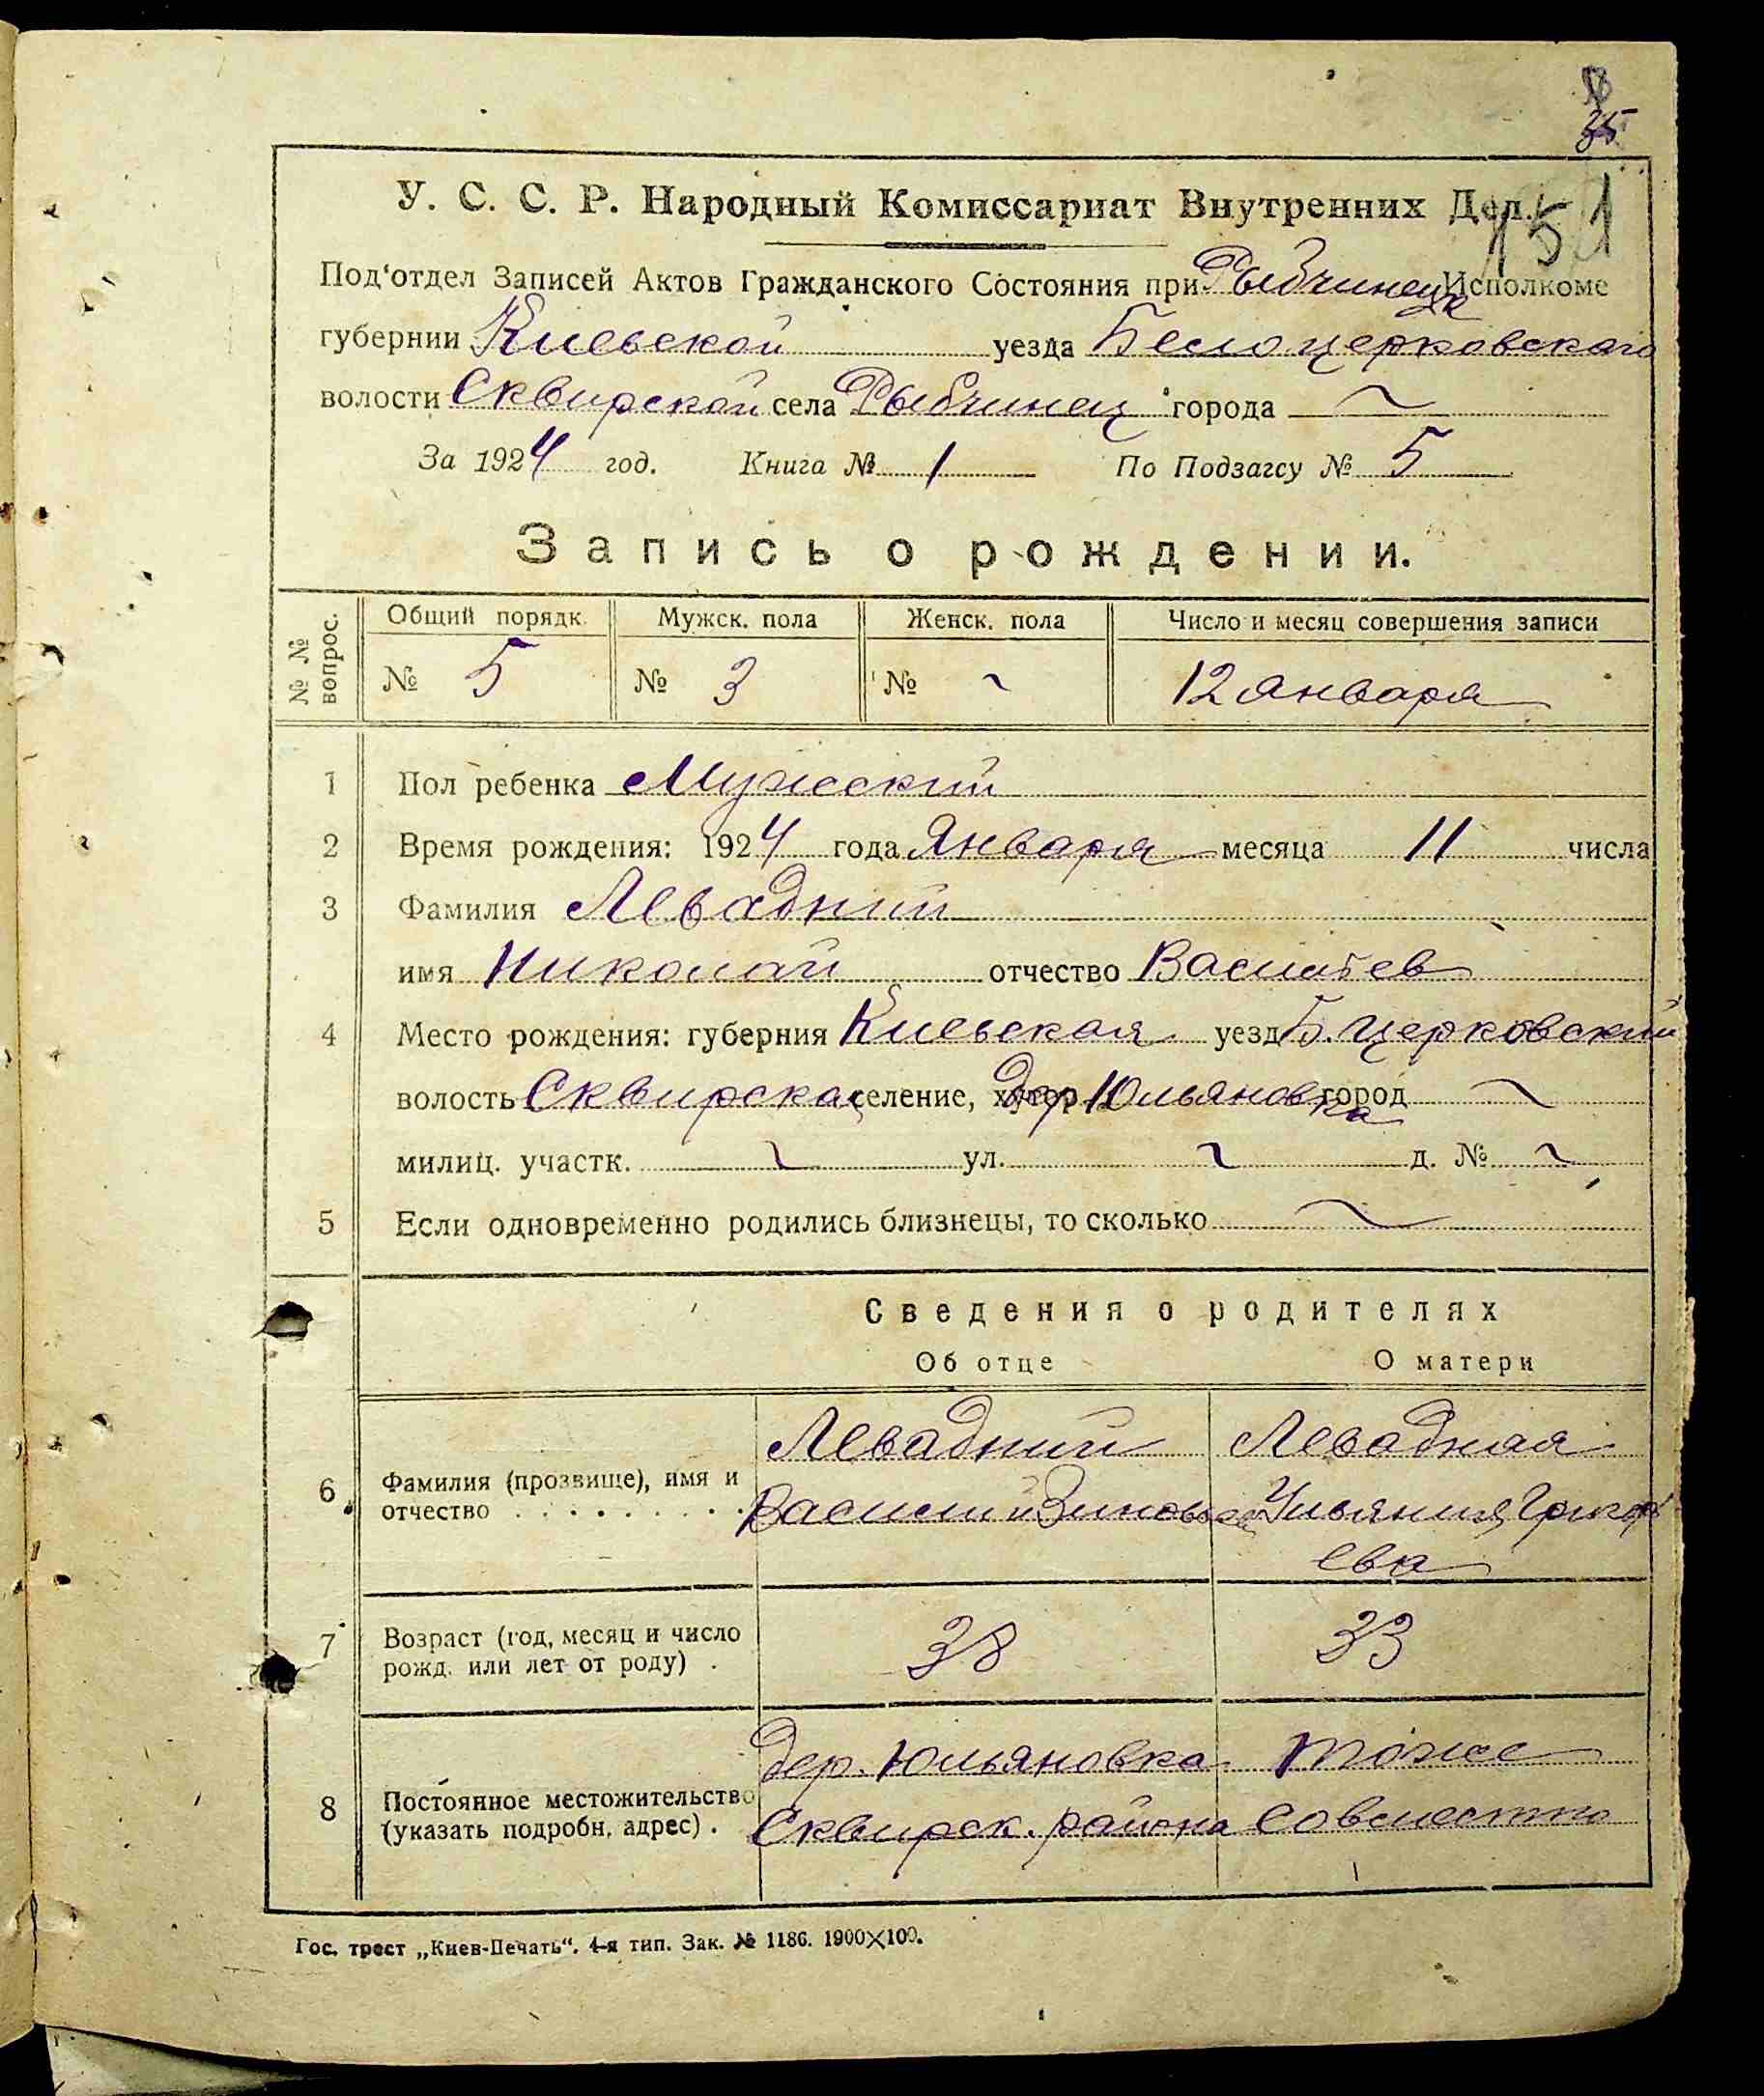 35
151
У. С. С. Р. Народный Комиссариат Внутренних Дел.
Под‘отдел Записей Актов Гражданского Состояния при Рыбчинецк Исполкоме
губернии Киевской уезда Белоцерковского
волости Сквирской села Рыбчинец города ~
За 1924 год. Книга № 1 По Подзагсу № 5
Запись о рождении.
№ № вопрос. Общий порядк. Мужск. пола Женск. пола Число и месяц совершения записи
№ 5 № 3 № ~ 12 января
1 Пол ребенка Мужеский
2 Время рождения: 1924 года Января месяца 11 числа
3 Фамилия Левадний
имя Николай отчество Васильев
4 Место рождения: губерния Киевская уезд Б. Церковский
волость Сквирская селение, хутор дер Юльяновка город ~
милиц. участк. ~ ул. ~ д. № ~
5 Если одновременно родились близнецы, то сколько ~
Сведения о родителях
Об отце О матери
Левадний Левадная
6 Фамилия (прозвище), имя и
отчество . . . . . . . . . Василий Зиновьев Ульяния Григорь
ева
7 Возраст (год, месяц и число
рожд. или лет от роду) . 38 33
дер. Юльяновка тоже
8 Постоянное местожительство
(указать подробн. адрес) . Сквирск. района совместно
Гос. трест „Киев-Печать“. 4-я тип. Зак. № 1186. 1900×100.